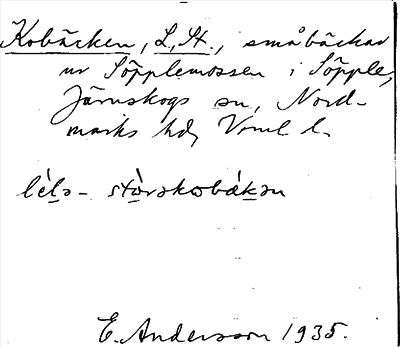 Kobäcken, L., St., småbäckar
ur Söpplemossen i Söpple,
Järnskogs sn, Nord-
marks hd, Vrml l.
lèls- stòrskobákən
E. Andersson 1935.